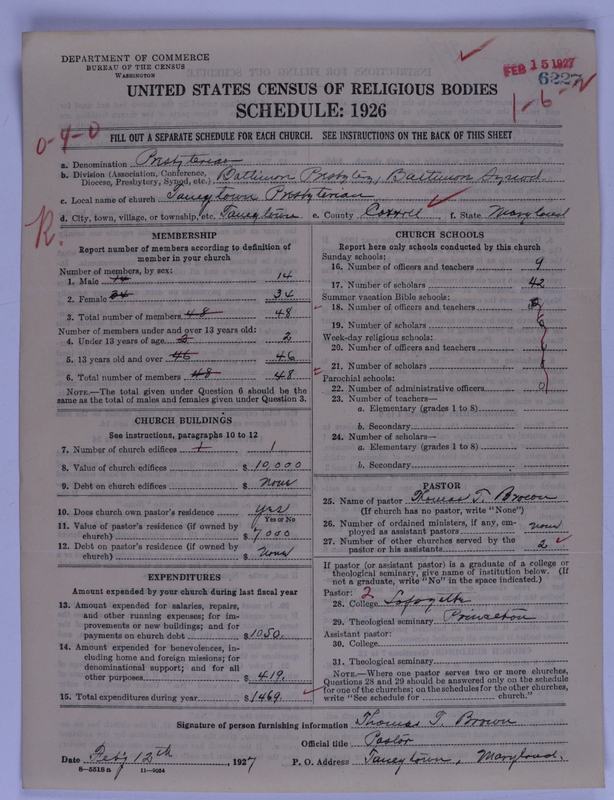 DEPARTMENT OF COMMERCE
BUREAU OF THE CENSUS
WASHINGTON
FEB 15 1927
6227
1-6-
UNITED STATES CENSUS OF RELIGIOUS BODIES
SCHEDULE: 1926
0-4-0
FILL OUT A SEPARATE SCHEDULE FOR EACH CHURCH. SEE INSTRUCTIONS ON THE BACK OF THIS SHEET
a. Denomination Presbyterian
b. Division (Association, Conference, Diocese, Presbytery, Synod, etc.) Baltimore Presbytery, Baltimore Synod.
c. Local name of church Taneytown Presbyterian
d. City, town, village, or township, etc. Taneytown e. County Carroll f. State Maryland
R.
MEMBERSHIP
Report number of members according to definition of
member in your church
Number of members, by sex:
1. Male 14 14
2. Female 34 34
3. Total number of members 48 48
Number of members under and over 13 years old:
4. Under 13 years of age 2
5. 13 years old and over 46 46
6. Total number of members 48 48
NOTE.—The total given under Question 6 should be
the same as the total of males and females given under Question 3.
CHURCH BUILDINGS
See instructions, paragraphs 10 to 12
7. Number of church edifices 1 1
8. Value of church edifices $ 10,000
9. Debt on church edifices $ None
10. Does church own pastor's residence yes
Yes or No
11. Value of pastor's residence (if owned by
church) $ 7000
12. Debt on pastor's residence (if owned by
church) $ None
EXPENDITURES
Amount expended by your church during last fiscal year
13. Amount expended for salaries, repairs,
and other running expenses; for im-
provements or new buildings; and for
payments on church debt $ 1050.
14. Amount expended for benevolences, in-
cluding home and foreign missions; for
denominational support; and for all
other purposes $ 419.
15. Total expenditures during year $ 1469
CHURCH SCHOOLS
Report here only schools conducted by this church
Sunday schools:
16. Number of officers and teachers 9
17. Number of scholars 42
Summer vacation Bible schools:
18. Number of officers and teachers
19. Number of scholars
Week-day religious schools:
20. Number of officers and teachers
21. Number of scholars
Parochial schools:
22. Number of administrative officers 0
23. Number of teachers—
a. Elementary (grades 1 to 8)
b. Secondary
24. Number of scholars—
a. Elementary (grades 1 to 8)
b. Secondary
PASTOR
25. Name of pastor Thomas T. Brown
(If church has no pastor, write "None")
26. Number of ordained ministers, if any, em-
ployed as assistant pastors none
27. Number of other churches served by the
pastor or his assistants 2
If pastor (or assistant pastor) is a graduate of a college or
theological seminary, give name of institution below. (If
not a graduate, write "No" in the space indicated.)
Pastor: 2
28. College Lafayette
29. Theological seminary Princeton
Assistant pastor:
30. College
31. Theological seminary
NOTE.—Where one pastor serves two or more churches,
Questions 28 and 29 should be answered only on the schedule
for one of the churches; on the schedules for the other churches,
write "See schedule for church."
Signature of person furnishing information Thomas T. Brown
Official title Pastor
Date Feby 12th, 1927 P. O. Address Taneytown, Maryland.
8—5518 a 11—9054